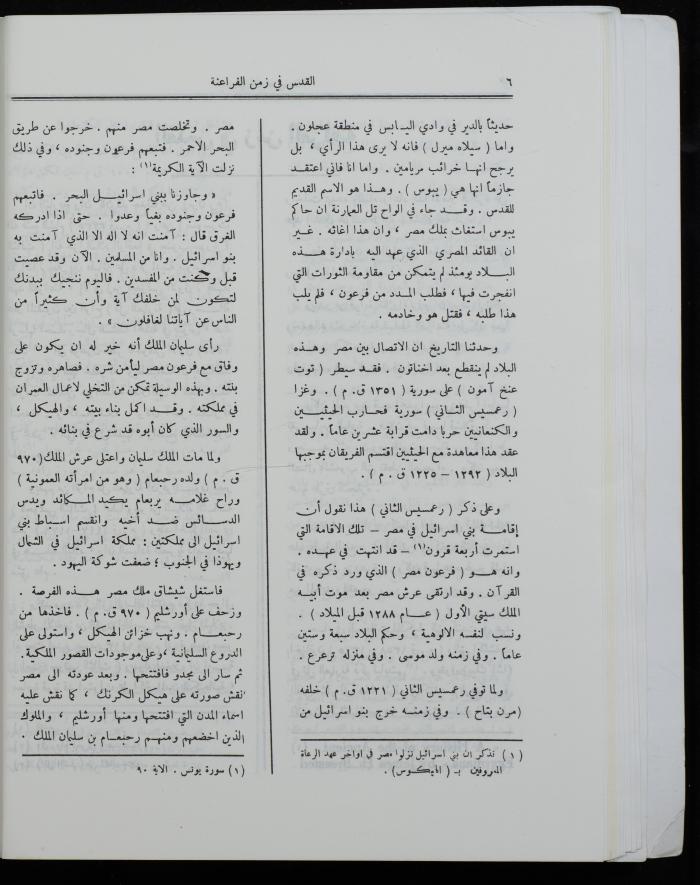 ٦
القدس في زمن الفراعنة
حديثاً بالدير في وادي اليابس في منطقة عجلون .
واما ( سيلاه ميرل ) فانه لا يرى هذا الرأي ، بل
يرجح انها خرائب مريامين . واما انا فاني اعتقد
جازماً انها هي ( يبوس ) . وهذا هو الاسم القديم
للقدس . وقد جاء في الواح تل العمارنة ان حاكم
يبوس استغاث بملك مصر ، وان هذا اغاثه . غير
ان القائد المصري الذي عهد اليه بادارة هذه
البلاد يومئذ لم يتمكن من مقاومة الثورات التي
انفجرت فيها ، فطلب المدد من فرعون ، فلم يلب
هذا طلبه ، فقتل هو وخادمه .
وحدثنا التاريخ ان الاتصال بين مصر وهذه
البلاد لم ينقطع بعد اخناتون . فقد سيطر ( توت
عنخ آمون ) على سورية ( ١٣٥١ ق . م ) . وغزا
( رعمسيس الثاني ) سورية فحارب الحيثيين
والكنعانيين حربا دامت قرابة عشرين عاماً . ولقد
عقد هذا معاهدة مع الحيثيين اقتسم الفريقان بموجبها
البلاد ( ١٢٩٢ – ١٢٢٥ ق . م ) .
وعلى ذكر ( رعمسيس الثاني ) هذا نقول أن
إقامة بني اسرائيل في مصر – تلك الاقامة التي
استمرت أربعة قرون (١) – قد انتهت في عهده .
وانه هو ( فرعون مصر ) الذي ورد ذكره في
القرآن . وقد ارتقى عرش مصر بعد موت أبيه
الملك سيتي الأول ( عام ١٢٨٨ قبل الميلاد ) .
ونسب لنفسه الالوهية ، وحكم البلاد سبعة وستين
عاماً . وفي زمنه ولد موسى . وفي منزله ترعرع .
ولما توفي رعمسيس الثاني ( ١٢٢١ ق. م ) خلفه
(مرن بتاح ) . وفي زمنه خرج بنو اسرائيل من
( ١ ) نذكر ان بني اسرائيل نزلوا مصر في اواخر عهد الرعاة
المعروفين بـ ( الهيكسوس ) .
مصر . وتخلصت مصر منهم . خرجوا عن طريق
البحر الاحمر . فتبعهم فرعون وجنوده ، وفي ذلك
نزلت الآية الكريمة (١) :
« وجاوزنا ببني اسرائيل البحر . فاتبعهم
فرعون وجنوده بغياً وعدوا . حتى اذا ادركه
الغرق قال : آمنت انه لا اله الا الذي آمنت به
بنو اسرائيل . وانا من المسلمين . الآن وقد عصيت
قبل وكنت من المفسدين . فاليوم ننجيك ببدنك
لتكون لمن خلفك آية وأن كثيراً من
الناس عن آياتنا لغافلون » .
رأى سليمان الملك أنه خير له ان يكون على
وفاق مع فرعون مصر ليأمن شره . فصاهره وتزوج
بنته . وبهذه الوسيلة تمكن من التخلي لاعمال العمران
في مملكته . وقد اكمل بناء بيته ، والهيكل ،
والسور الذي كان أبوه قد شرع في بنائه .
ولما مات الملك سليمان واعتلى عرش الملك (٩٧٠
ق . م ) ولده رحبعام ( وهو من امرأته العمونية )
وراح غلامه يربعام يكيد المكائد ويدس
الدسائس ضد أخيه وانقسم اسباط بني
اسرائيل الى مملكتين : مملكة اسرائيل في الشمال
ويهوذا في الجنوب ؛ ضعفت شوكة اليهود .
فاستغل شيشاق ملك مصر هذه الفرصة .
وزحف على أورشليم ( ٩٧٠ ق. م ) . فاخذها من
رحبعام . ونهب خزائن الهيكل ، واستولى على
الدروع السليمانية ، وعلى موجودات القصور الملكية.
ثم سار الى مجدو فافتتحها . وبعد عودته الى مصر
نقش صورته على هيكل الكرنك ، كما نقش عليه
اسماء المدن التي افتتحها ومنها أورشليم ، والملوك
الذين اخضعهم ومنهم رحبعام بن سليمان الملك .
(١) سورة يونس . الاية ٩٠